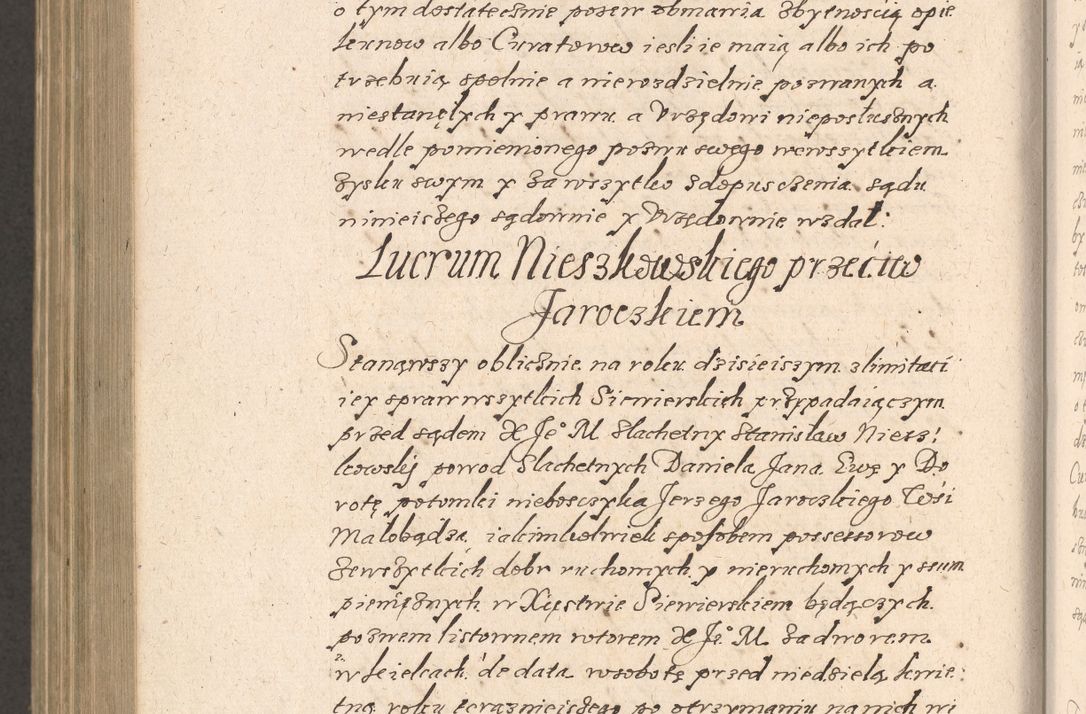 o tym dostatecznie pozew obmawia zbytnoscią opie
kunow albo Curatorow iesli ie maią albo ich po
trzebuią spolnie a nierozdzielnie pozwanych a
niestanęłych y prawu a Vrzędowi nieposłusznych
wedle pomienionego pozwu swego wewszytkiem
zysku swym y za wszytko z dopusczenia sądu
ninieiszego sądownie y Vrzędownie wzdał:
Lucrum Nieszkowskiego przeciw
Jaroczkiem
Stanąwszy oblicznie na roku dzisieiszym z limitatii
iey spraw wszytkich Siewierskich przypadaiączym
przed sądem X Je° M Slachetny Stanisław Niesz:
kowsky powod Slachetnych Daniela Jana Ewę y Do
rotę potomki nieboszczyka Jerzego Jaroczkiego Wsi
Małobądza iakimkolwiek sposobem possessorow
ze wszytkich dobr ruchomych y nieruchomych y sum
pieniężnych w Xięstwie Siewierskiem będączych
pozwem listownem wtorem X Je° M za dworem
w Kielcach de data w sobotę przed niedzielą kwie:
tną roku terazniejszego po otrzymaniu na nich wi